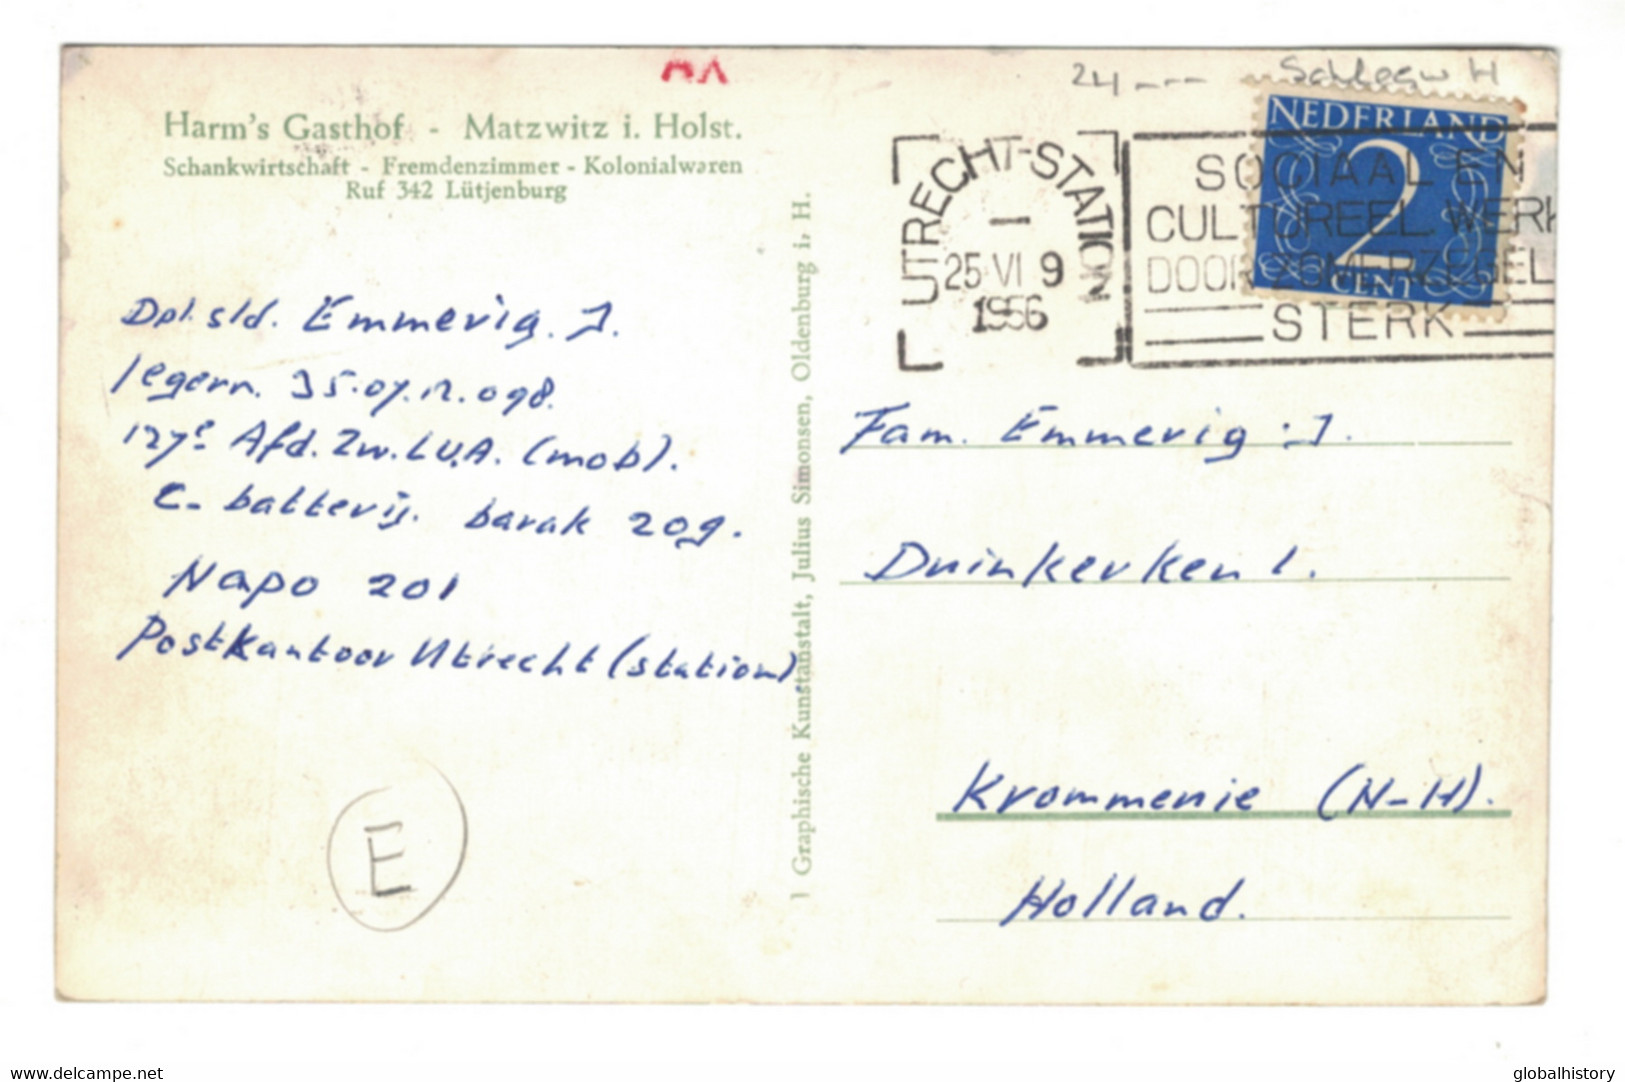 24 ---
Harm's Gasthof - Matzwitz i. Holst.
Schankwirtschaft - Fremdenzimmer - Kolonialwaren
Ruf 342 Lütjenburg
UTRECHT-STATION
25 VI 9
1956
SOCIAAL EN
CULTUREEL WERK
DOOR ZOMERZEGEL
STERK
NEDERLAND
2
CENT
Dpl. sld. Emmerig. J.
legern. 35.07.12.098.
127e Afd. Zw. LUA. (mob).
C- batterij. barak 209.
Napo 201
Postkantoor Utrecht (station)
E
1 Graphische Kunstanstalt, Julius Simonsen, Oldenburg i. H.
Fam. Emmerig : J.
Duinkerken 1.
Krommenie (N-H).
Holland.
www.delcampe.net
globalhistory